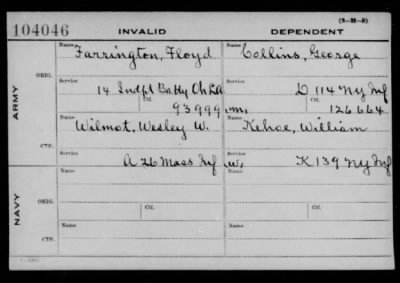 (3-M-5)
104046 INVALID DEPENDENT
Name Farrington, Floyd Name Collins, George
ORIG.
Service 14 Indpt Batty Oh L A Service D 114 Ny Inf
Ctf. 93999 Ctf. 126664
ARMY
Name Wilmot, Wesley W. Name Kehoe, William
CTF.
Service A 26 Mass Inf Service K 139 Ny Inf
Name Name
ORIG.
Ctf. Ctf.
NAVY
Name Name
CTF.